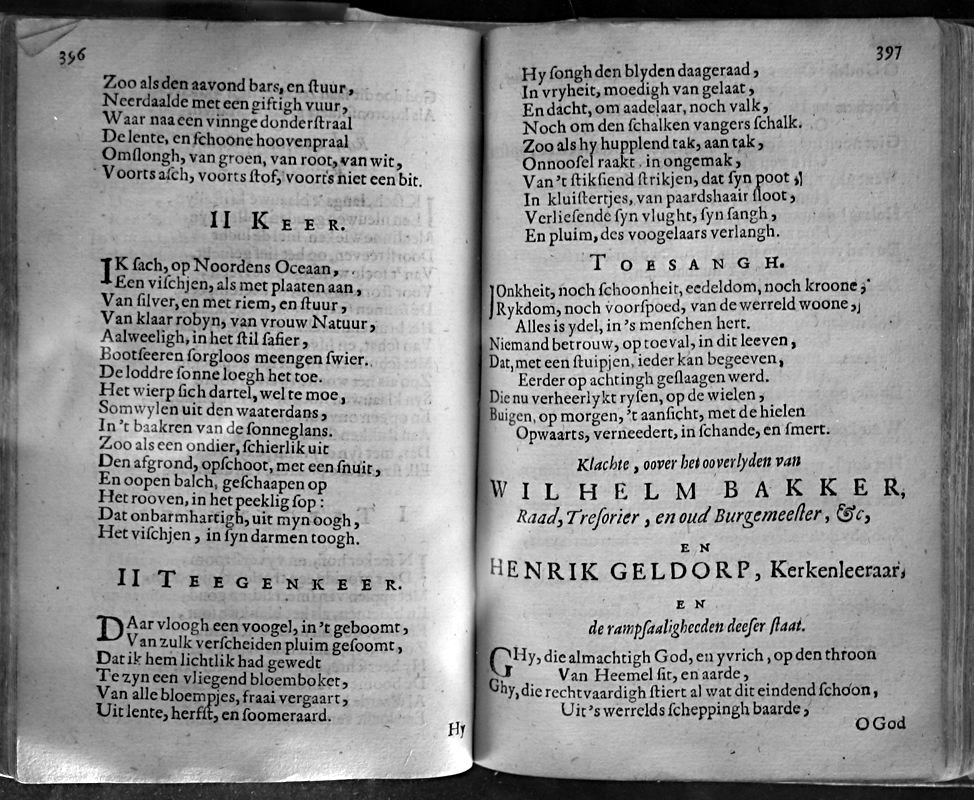 396
Zoo als den aavond bars, en ſtuur,
Neerdaalde met een giftigh vuur,
Waar naa een vinnge donderſtraal
De lente, en ſchoone hoovenpraal
Omſlongh, van groen, van root, van wit,
Voorts aſch, voorts ſtof, voorts niet een bit.
II KEER.
IK ſach, op Noordens Oceaan,
Een viſchjen, als met plaaten aan,
Van ſilver, en met riem, en ſtuur,
Van klaar robyn, van vrouw Natuur,
Aalweeligh, in het ſtil ſaſier,
Bootſeeren ſorgloos meengen ſwier.
De loddre ſonne loegh het toe.
Het wierp ſich dartel, wel te moe,
Somwylen uit den waaterdans,
In 't baakren van de ſonneglans.
Zoo als een ondier, ſchierlik uit
Den afgrond, opſchoot, met een ſnuit,
En oopen balch, geſchaapen op
Het rooven, in het peeklig ſop:
Dat onbarmhartigh, uit myn oogh,
Het viſchjen, in ſyn darmen toogh.
II TEEGENKEER.
DAar vloogh een voogel, in 't geboomt,
Van zulk verſcheiden pluim geſoomt,
Dat ik hem lichtlik had gewedt
Te zyn een vliegend bloemboket,
Van alle bloempjes, fraai vergaart,
Uit lente, herfſt, en ſoomeraard.
Hy
397
Hy ſongh den blyden daageraad,
In vryheit, moedigh van gelaat,
En dacht, om aadelaar, noch valk,
Noch om den ſchalken vangers ſchalk.
Zoo als hy hupplend tak, aan tak,
Onnooſel raakt in ongemak,
Van 't ſtikſiend ſtrikjen, dat ſyn poot,
In kluiſtertjes, van paardshaair ſloot,
Verlieſende ſyn vlught, ſyn ſangh,
En pluim, des voogelaars verlangh.
TOESANGH.
JOnkheit, noch ſchoonheit, eedeldom, noch kroone,
Rykdom, noch voorſpoed, van de werreld woone,
Alles is ydel, in 's menſchen hert.
Niemand betrouw, op toeval, in dit leeven,
Dat, met een ſtuipjen, ieder kan begeeven,
Eerder op achtingh geſlaagen werd.
Die nu verheerlykt ryſen, op de wielen,
Buigen, op morgen, 't aanſicht, met de hielen
Opwaarts, verneedert, in ſchande, en ſmert.
Klachte, oover het ooverlyden van
WILHELM BAKKER,
Raad, Treſorier, en oud Burgemeeſter, &c,
EN
HENRIK GELDORP, Kerkenleeraar,
EN
de rampſaaligheeden deeſer ſtaat.
GHy, die almachtigh God, en yvrich, op den throon
Van Heemel ſit, en aarde,
Ghy, die rechtvaardigh ſtiert al wat dit eindend ſchoon,
Uit 's werrelds ſcheppingh baarde,
O God